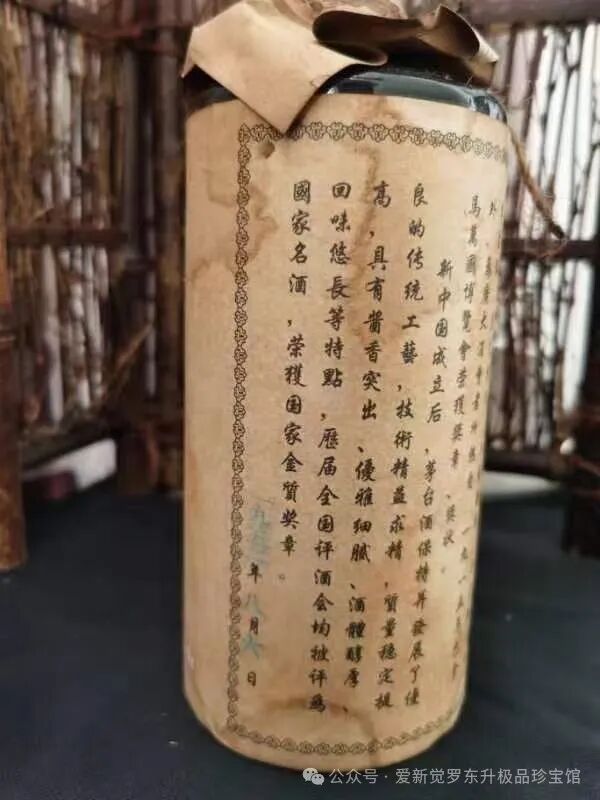 一九一五年巴拿
馬萬國博覽會荣獲奖章、奖状。
新中国成立后,茅台酒保持并發展了優
良的传统工藝,技術精益求精,質量穩定提
高,具有醬香突出、優雅细腻、酒體醇厚、
回味悠長等特點,歷届全国评酒会均被评爲
國家名酒,荣獲国家金質奖章。
年八月六日
公众号·爱新觉罗东升极品珍宝馆